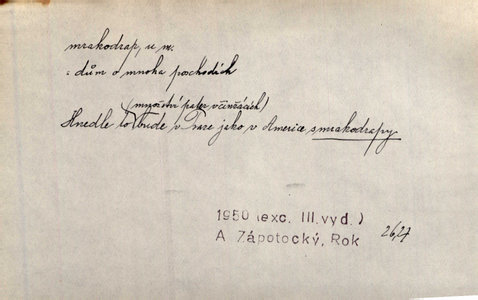 mrakodrap, u m.
: dům o mnoha poschodích
(množství pater v činžácích)
Hnedle to bude v Praze jako v Americe s mrakodrapy
1950 (exc. III. vyd.)
A Zápotocký, Rok 26,27